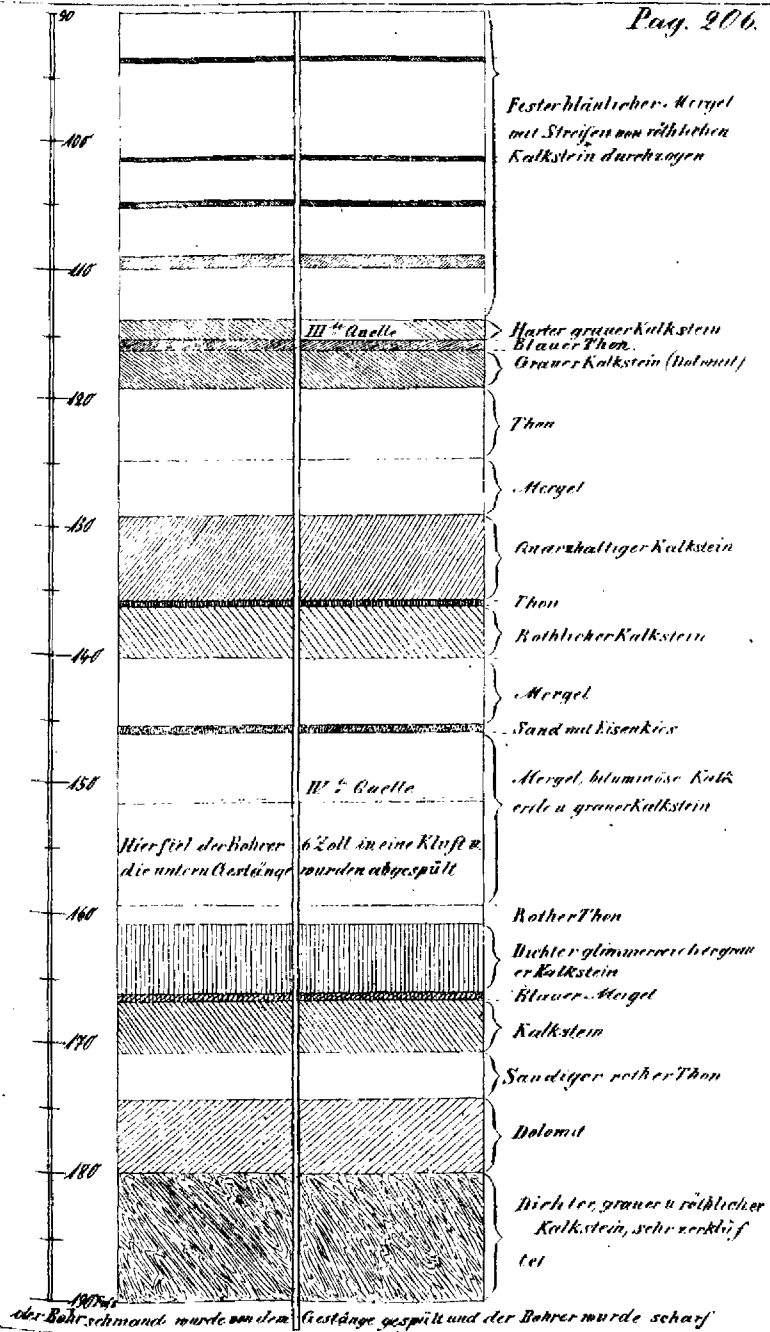 90
Pag. 206.
Fester bläulicher Mergel
mit Streifen von röthlichen
Kalkstein durchzogen
100
110
IIIte Quelle
Harter grauer Kalkstein
Blauer Thon
Grauer Kalkstein (Dolomit)
120
Thon
Mergel
130
Quarzhaltiger Kalkstein
Thon
Röthlicher Kalkstein
140
Mergel
Sand mit Eisenkies
150
IVte Quelle
Mergel, bituminöse Kalk
erde u grauer Kalkstein
Hier fiel der Bohrer 6 Zoll in eine Kluft u
die untern Gestänge wurden abgespült
160
Rother Thon
Dichter glimmerreicher grau
er Kalkstein
Blauer Mergel
170
Kalkstein
Sandiger rother Thon
Dolomit
180
Dichter, grauer u röthlicher
Kalkstein, sehr zerklüf
tet
190 Fuss
der Bohrschmand wurde von dem Gestänge gespült und der Bohrer wurde scharf